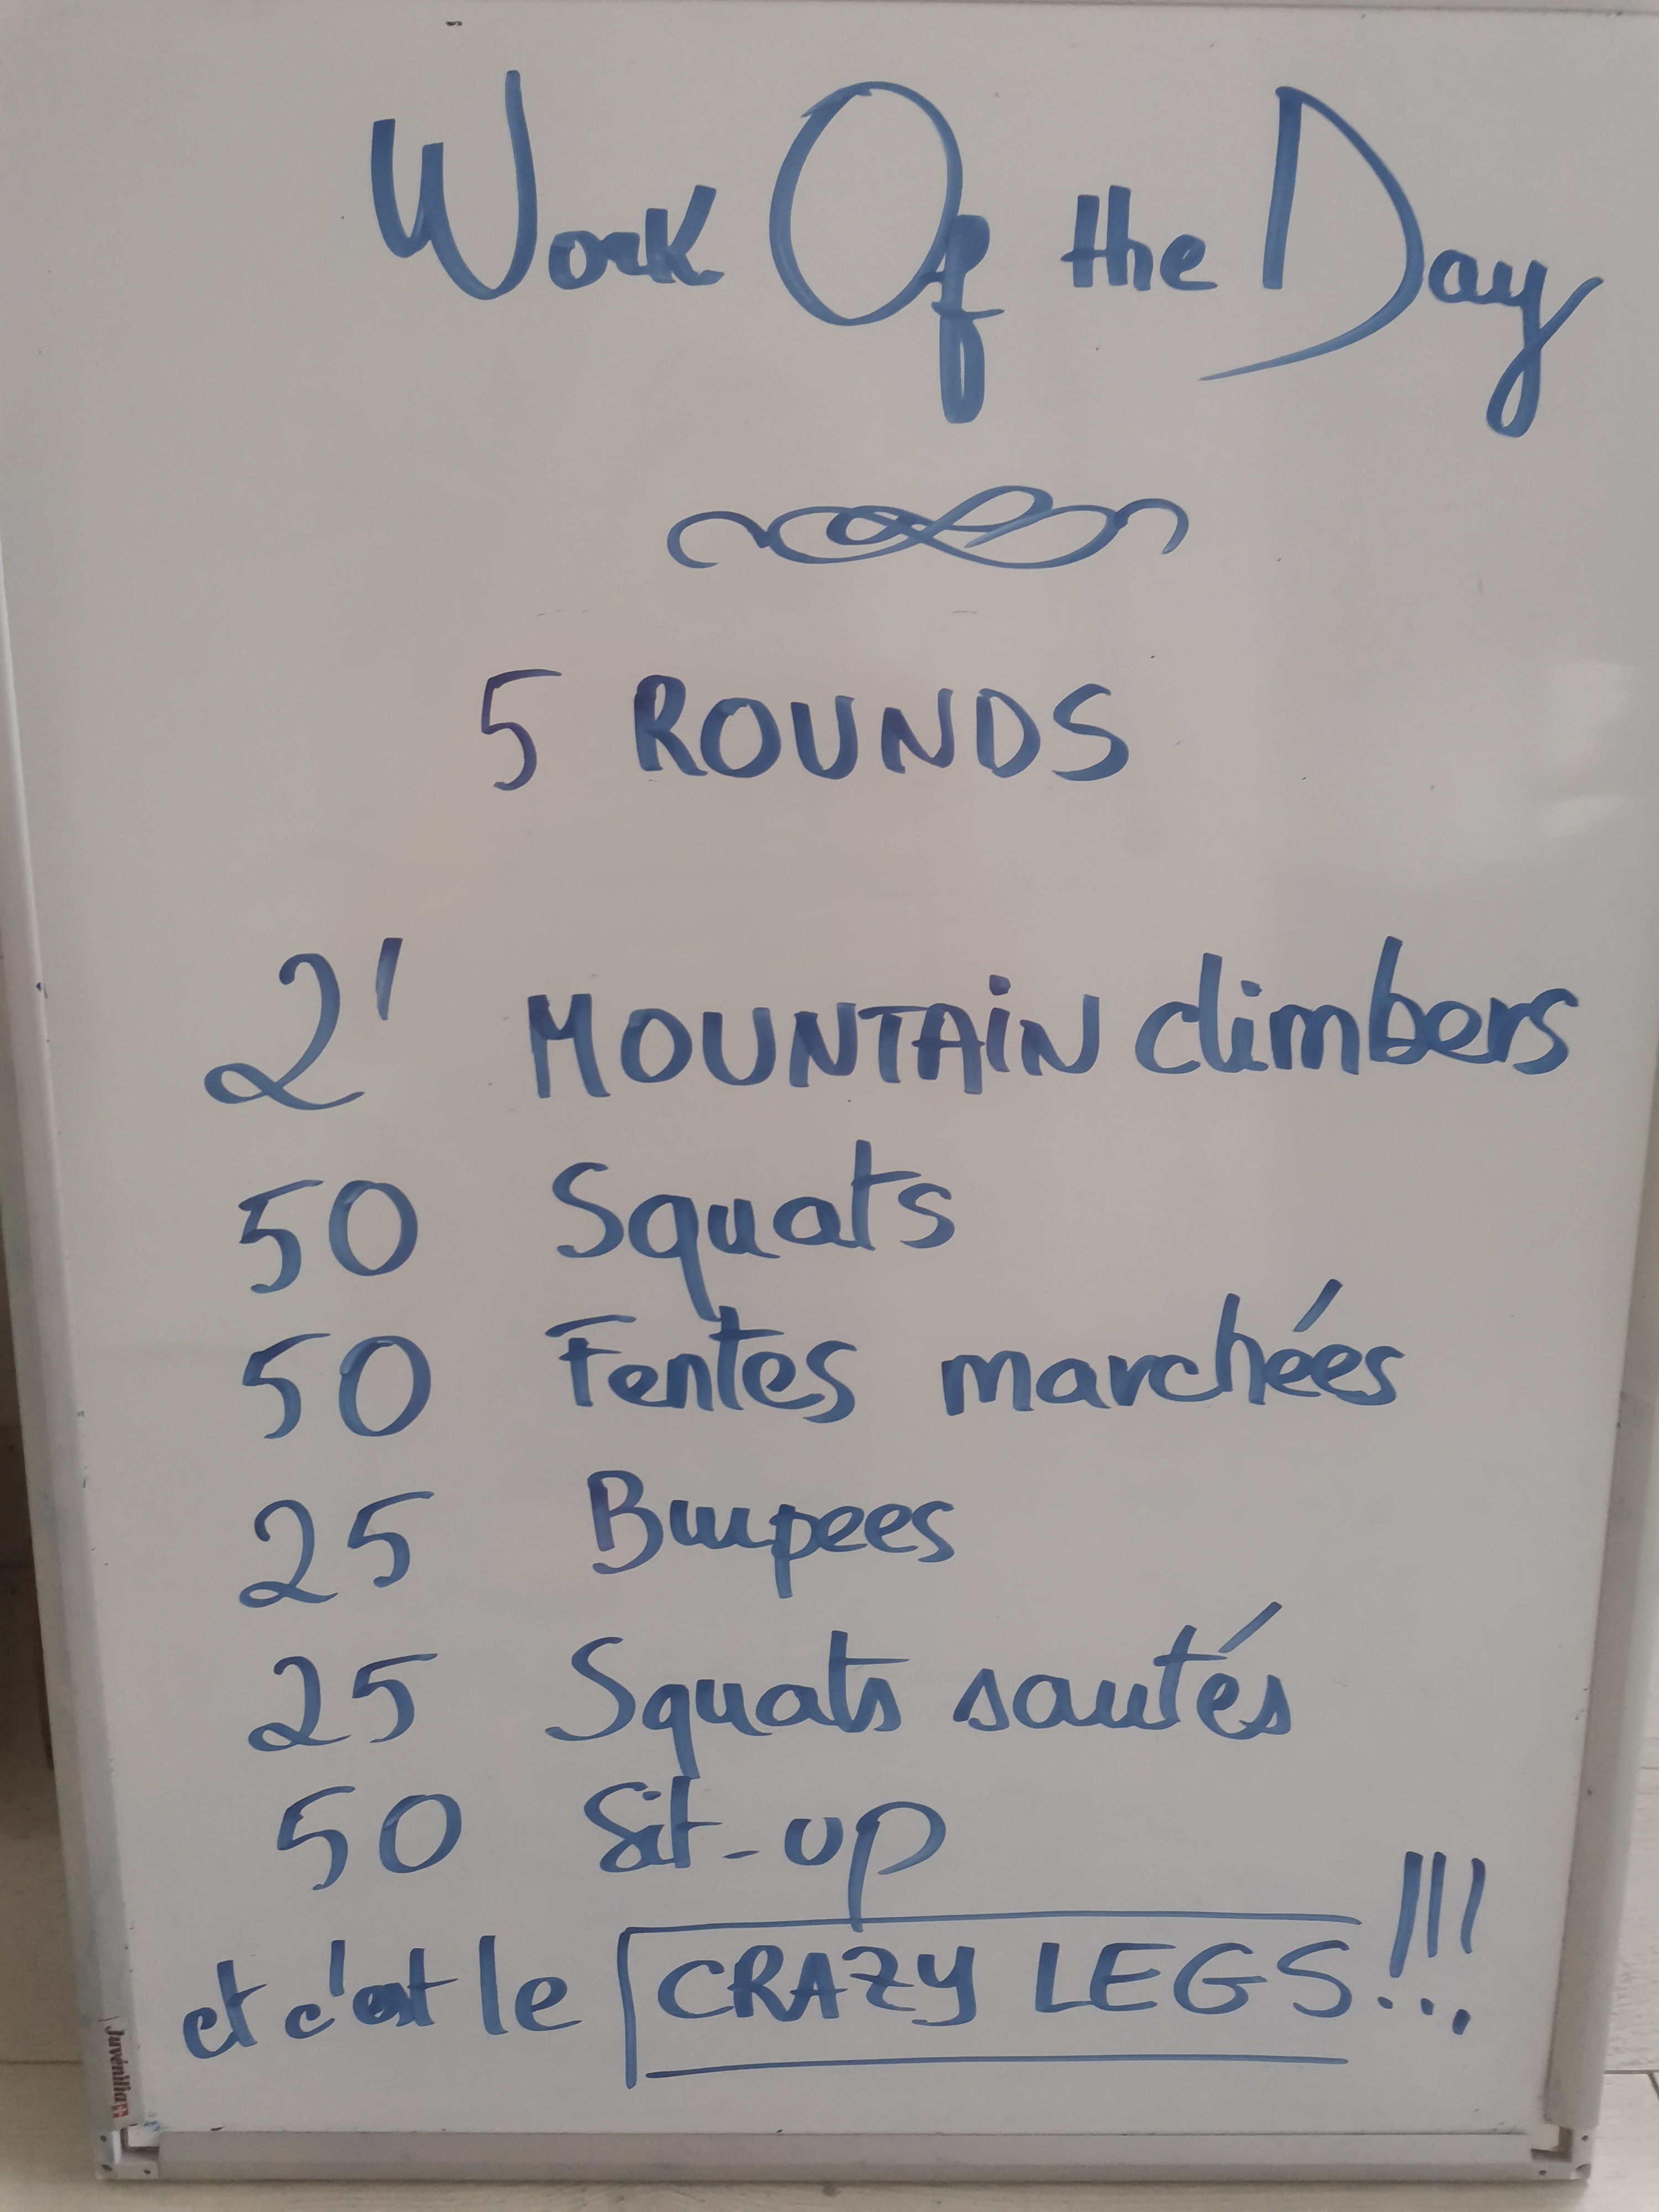 Work Of the Day
5 ROUNDS
2' MOUNTAiN climbers
50 Squats
50 Fentes marchées
25 Burpees
25 Squats sautés
50 Sit-up
et c'est le CRAZY LEGS!!!
Juvénilia